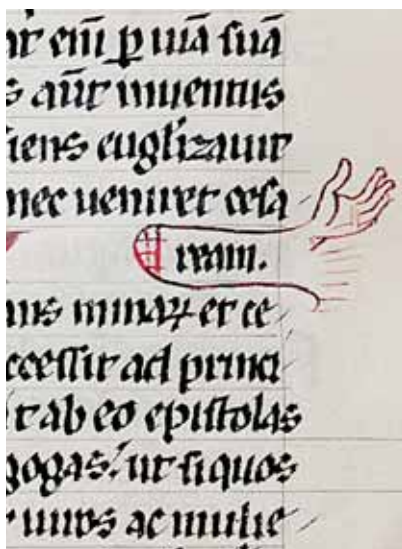 at eīm ꝑ uiā suā
s aūt inuentus
iens euglīzauit
nec ueniret cesa
ream.
ans minaꝝ et ce
ccessit ad princi
t ab eo epistolas
gogas: ut siquos
uiros ac mulie